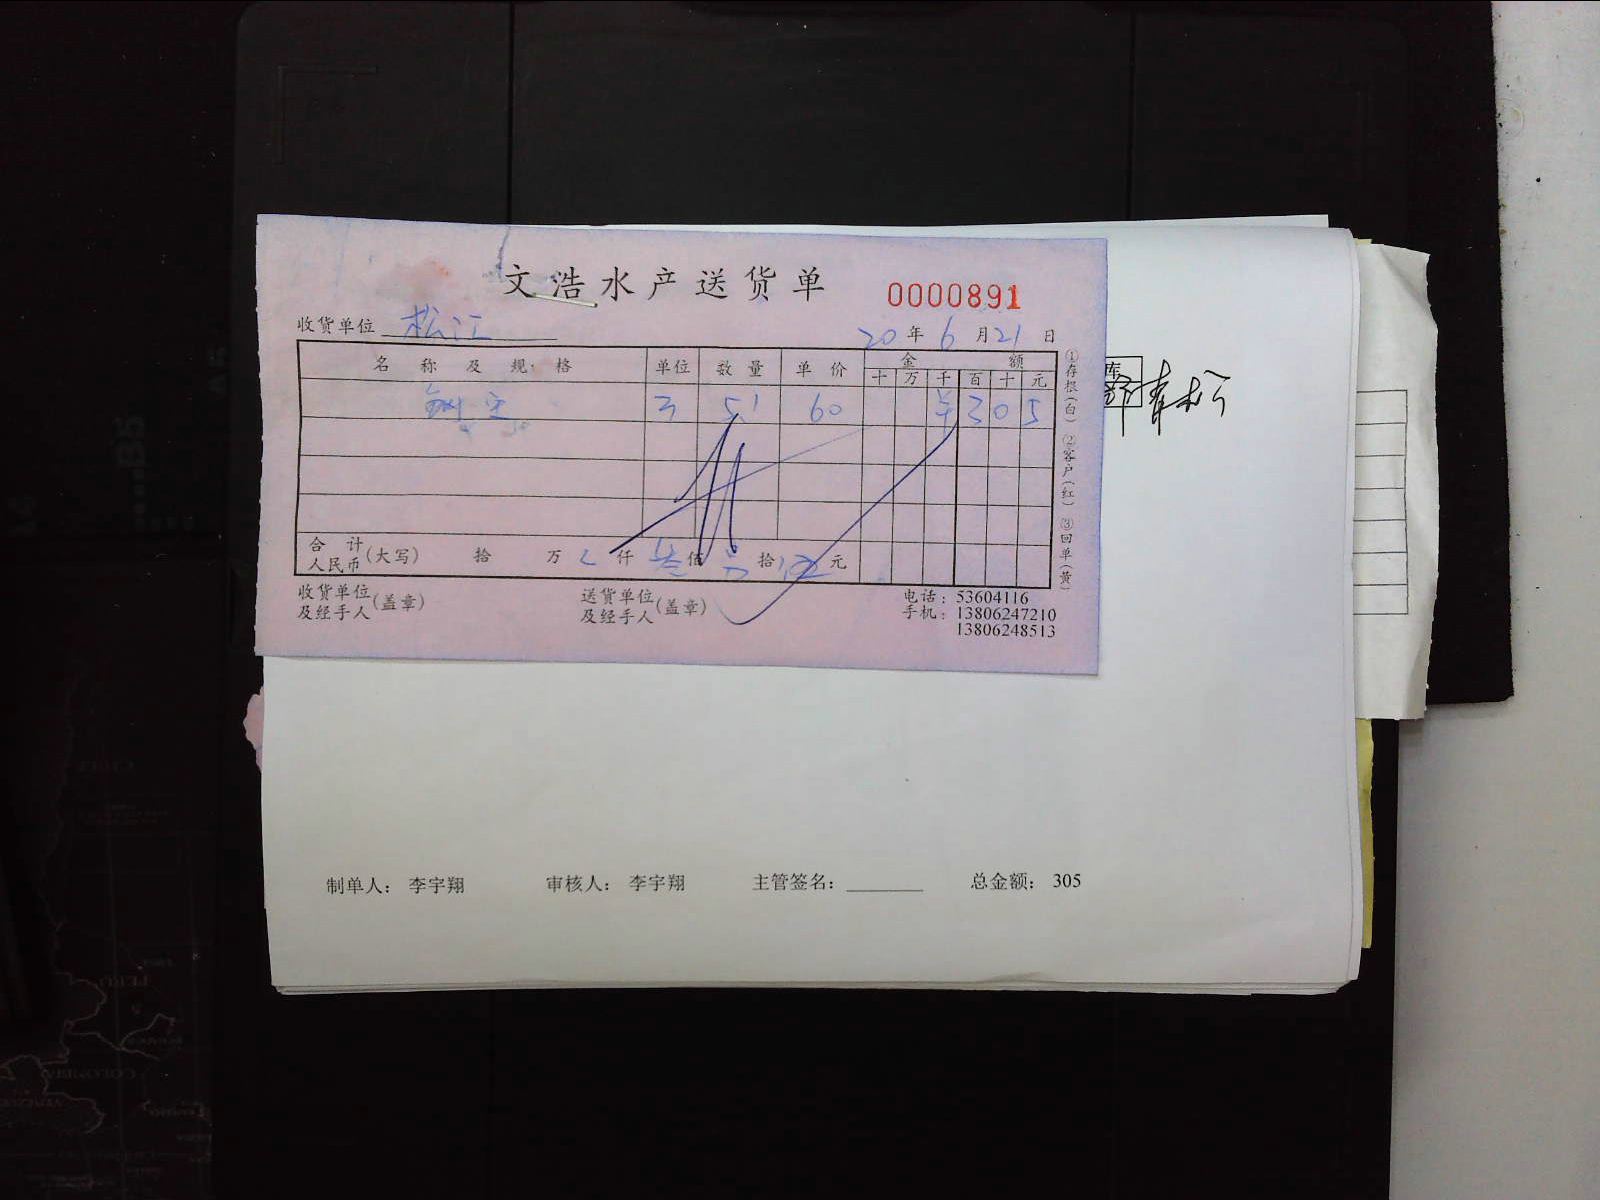 文浩水产送货单
0000891
收货单位 松江
20 年 6 月 21 日
名称及规格 单位 数量 单价 金额
十 万 千 百 十 元
51 60 ¥ 3 0 5
合计人民币(大写) 拾 万 仟 佰 拾 元
收货单位及经手人(盖章) 送货单位及经手人(盖章)
电话: 53604116
手机: 13806247210
13806248513
①存根(白) ②客户(红) ③回单(黄)
库
青松
制单人: 李宇翔 审核人: 李宇翔 主管签名: 总金额: 305